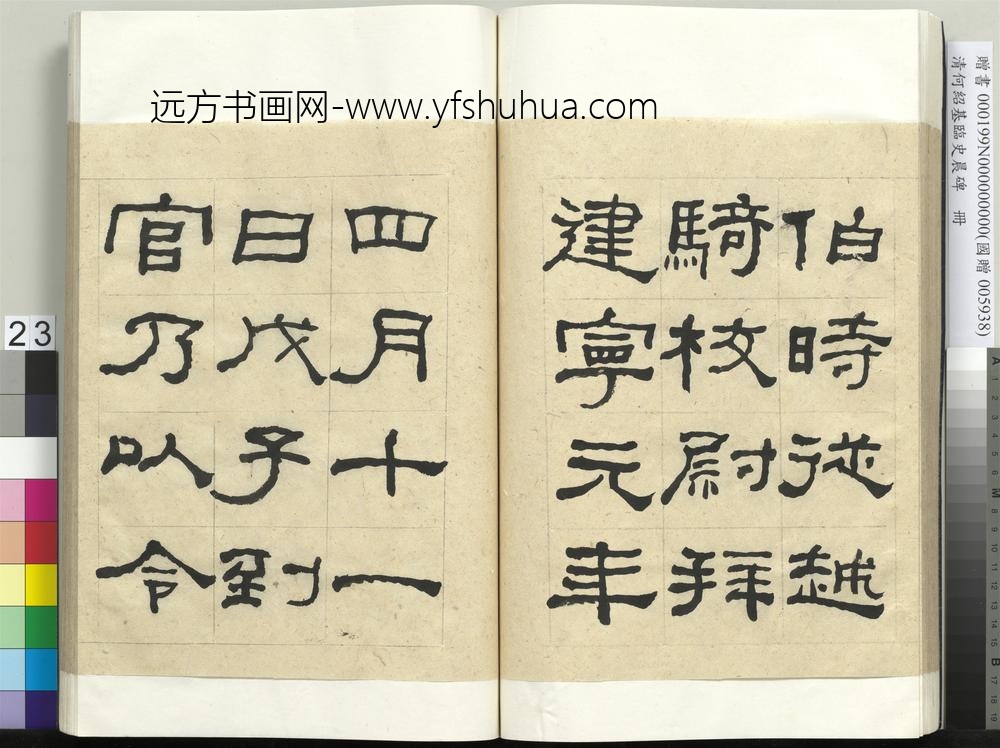 远方书画网-www.yfshuhua.com
伯時從越
騎校尉拜
建寧元年
四月十一
日戊子到
官乃以令
贈書 000199N000000000(國贈 005938)
清何紹基臨史晨碑 冊
23
A 1 2 3 4 5 6 M 8 9 10 11 12 13 14 15 B 17 18 19